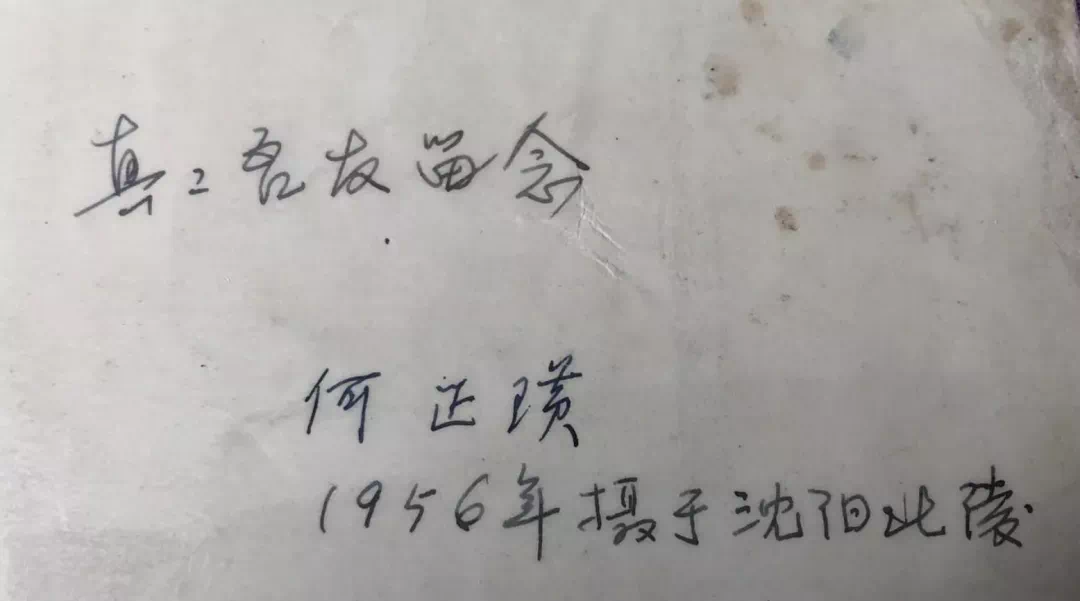 真:吾友留念
何正璜
1956年摄于沈阳北陵